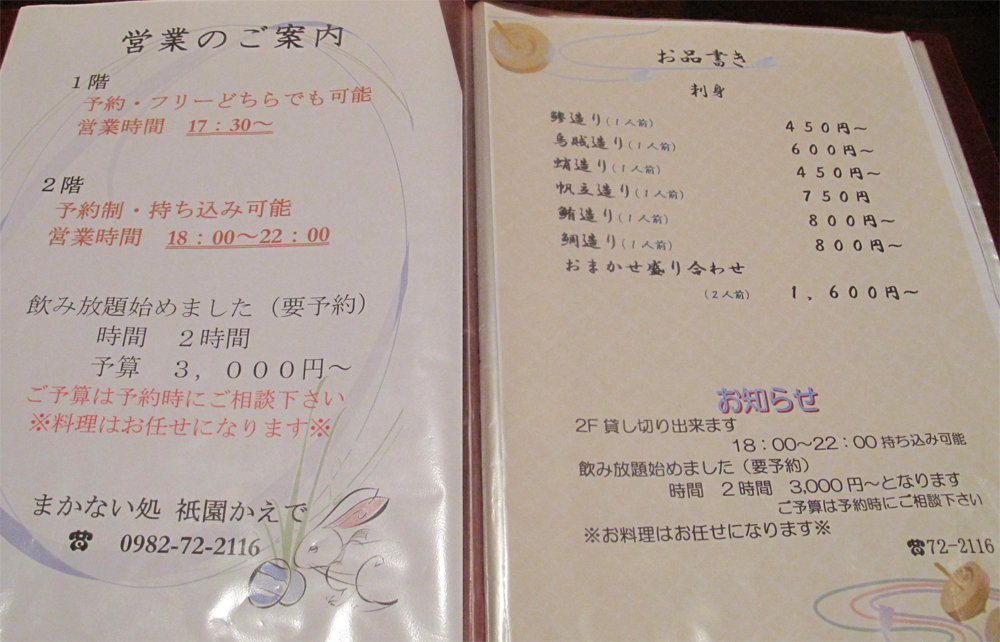 営業のご案内
１階
予約・フリーどちらでも可能
営業時間　17：30～
２階
予約制・持ち込み可能
営業時間　18：00～22：00
飲み放題始めました（要予約）
時間　２時間
予算　３，０００円～
ご予算は予約時にご相談下さい
※料理はお任せになります※
まかない処 祇園かえで
☎ 0982-72-2116
お品書き
刺身
鯵造り(１人前)　４５０円～
烏賊造り(１人前)　６００円～
蛸造り(１人前)　４５０円～
帆立造り(１人前)　７５０円
鮪造り(１人前)　８００円～
鯛造り(１人前)　８００円～
おまかせ盛り合わせ
(２人前)　１，６００円～
お知らせ
2F 貸し切り出来ます
18：00～22：00 持ち込み可能
飲み放題始めました（要予約）
時間　２時間　3,000円～となります
ご予算は予約時にご相談下さい
※お料理はお任せになります※
☎72-2116